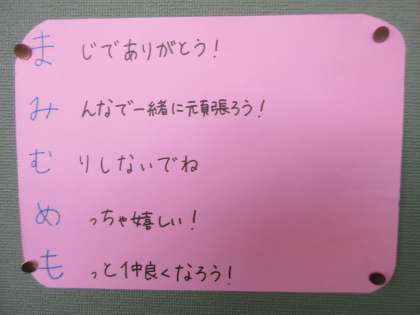 まじでありがとう!
みんなで一緒に頑張ろう!
むりしないでね
めっちゃ嬉しい!
もっと仲良くなろう!